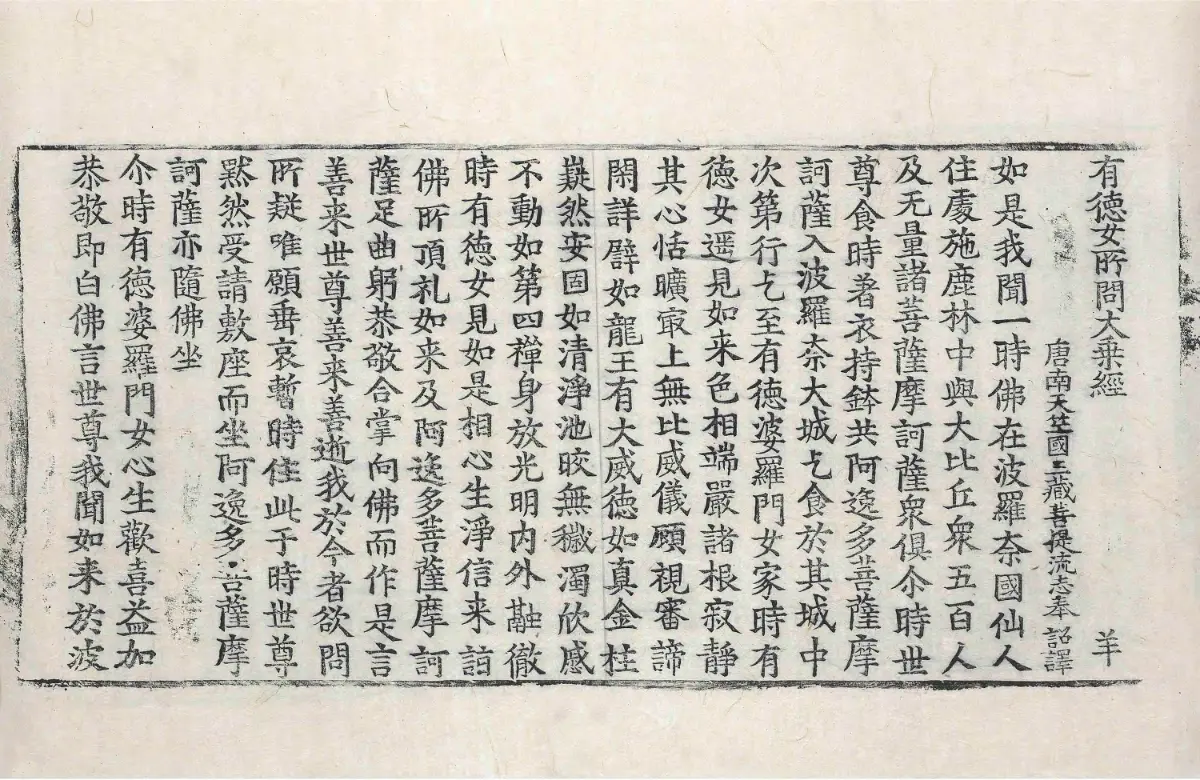 有德女所問大乗經　羊
唐南天竺國三藏菩提流志奉　詔譯
如是我聞一時佛在波羅奈國仙人
住處施鹿林中與大比丘衆五百人
及无量諸菩薩摩訶薩衆俱尒時世
尊食時著衣持鉢共阿逸多菩薩摩
訶薩入波羅奈大城乞食於其城中
次第行乞至有德婆羅門女家時有
德女遥見如来色相端嚴諸根寂靜
其心恬曠寂上無比威儀顧視審諦
閑詳譬如龍王有大威德如真金柱
嶷然安固如清淨池皎無穢濁欣感
不動如第四禪身放光明内外融徹
時有德女見如是相心生淨信来詣
佛所頂礼如来及阿逸多菩薩摩訶
薩足曲躬恭敬合掌向佛而作是言
善来世尊善来善逝我於今者欲問
所疑唯願垂哀暫時住此于時世尊
黙然受請敷座而坐阿逸多菩薩摩
訶薩亦隨佛坐
尒時有德婆羅門女心生歡喜益加
恭敬即白佛言世尊我聞如来於波